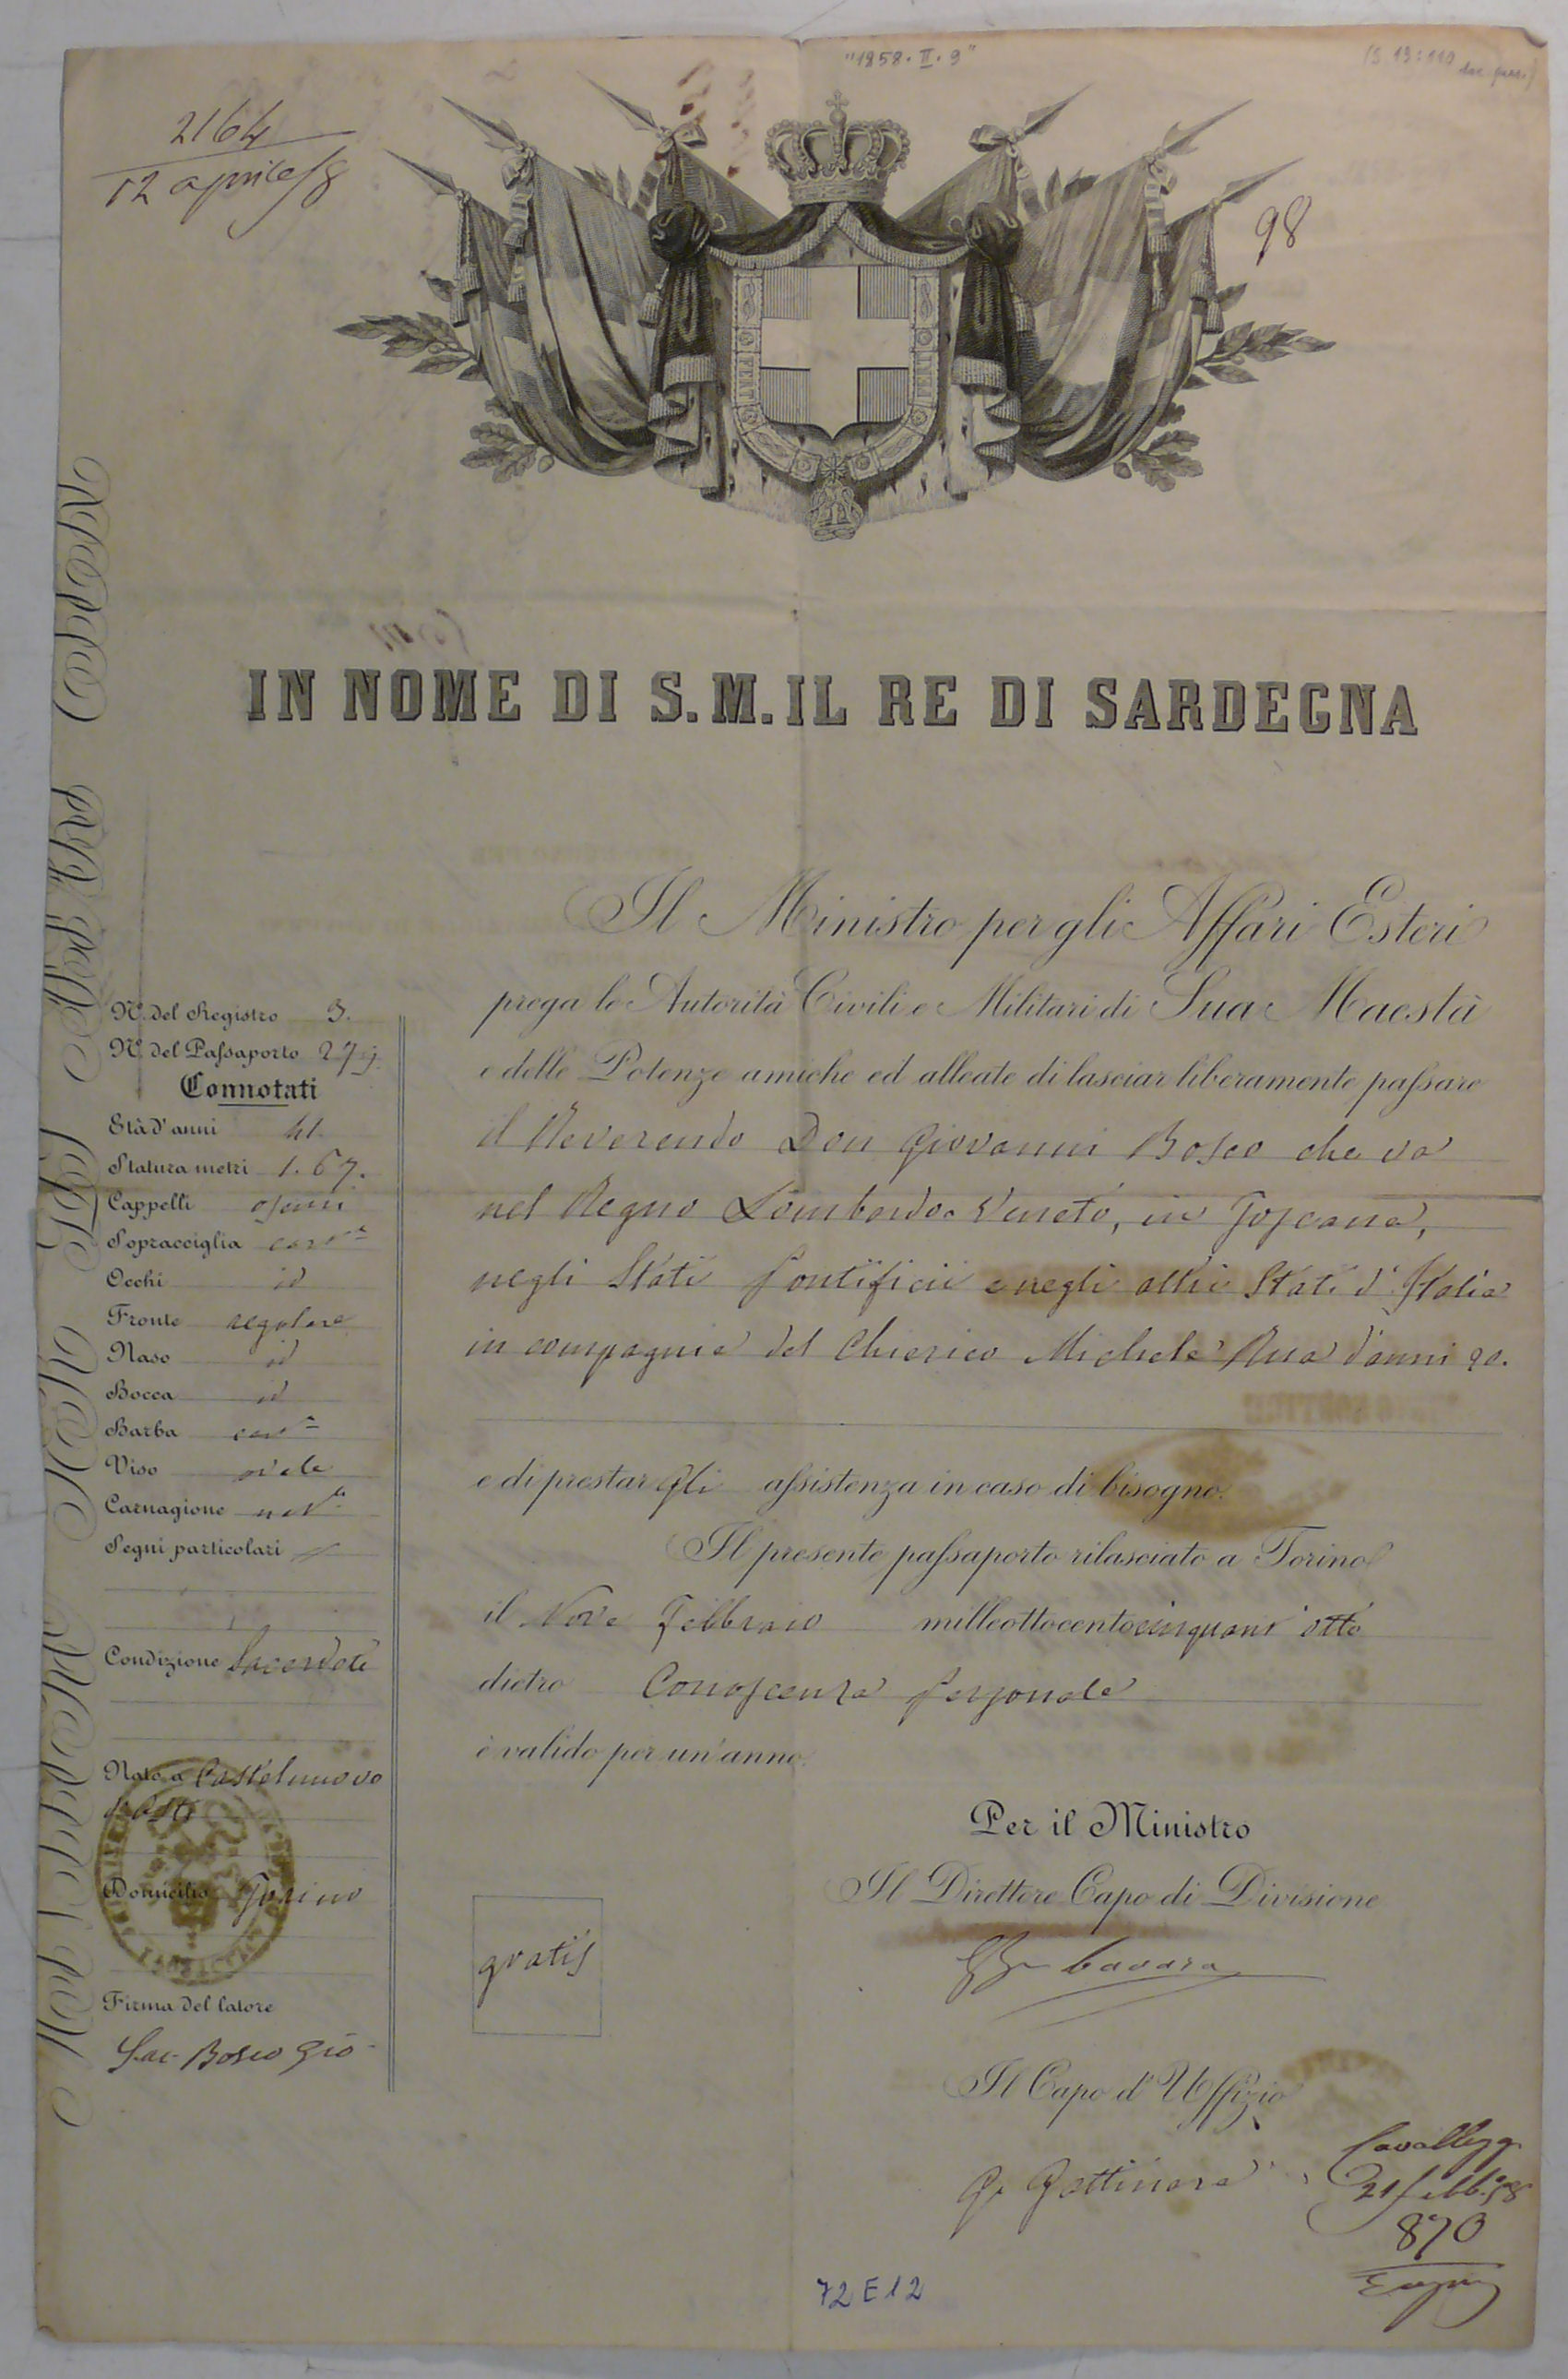 "1858.II.9"
2164
12 aprile/8
98
IN NOME DI S.M. IL RE DI SARDEGNA
Il Ministro per gli Affari Esteri
prega le Autorità Civili e Militari di Sua Maestà
e delle Potenze amiche ed alleate di lasciar liberamente passare
il Reverendo Don Giovanni Bosco che va
nel Regno Lombardo Veneto, in Toscana,
negli Stati Pontificii e negli altri Stati d'Italia
in compagnia del Chierico Michele Rua d'anni 20.
e di prestargli assistenza in caso di bisogno.
Il presente passaporto rilasciato a Torino
il Nove Febbraio millottocentocinquant'otto
dietro Conoscenza personale
è valido per un'anno.
N.º del Registro 3.
N.º del Passaporto 279
Connotati
Età d'anni 41.
Statura metri 1.67.
Cappelli oscuri
Sopracciglia
Occhi id
Fronte regolare
Naso id
Bocca id
Barba
Viso ovale
Carnagione
Segni particolari
Condizione Sacerdote
Nato a Castelnuovo
d'Asti
Domicilio Torino
Firma del latore
Sac. Bosco Gio
gratis
Per il Ministro
Il Direttore Capo di Divisione
Il Capo d'Uffizio
G. Gattinara
21 febb. 58
870
72E12